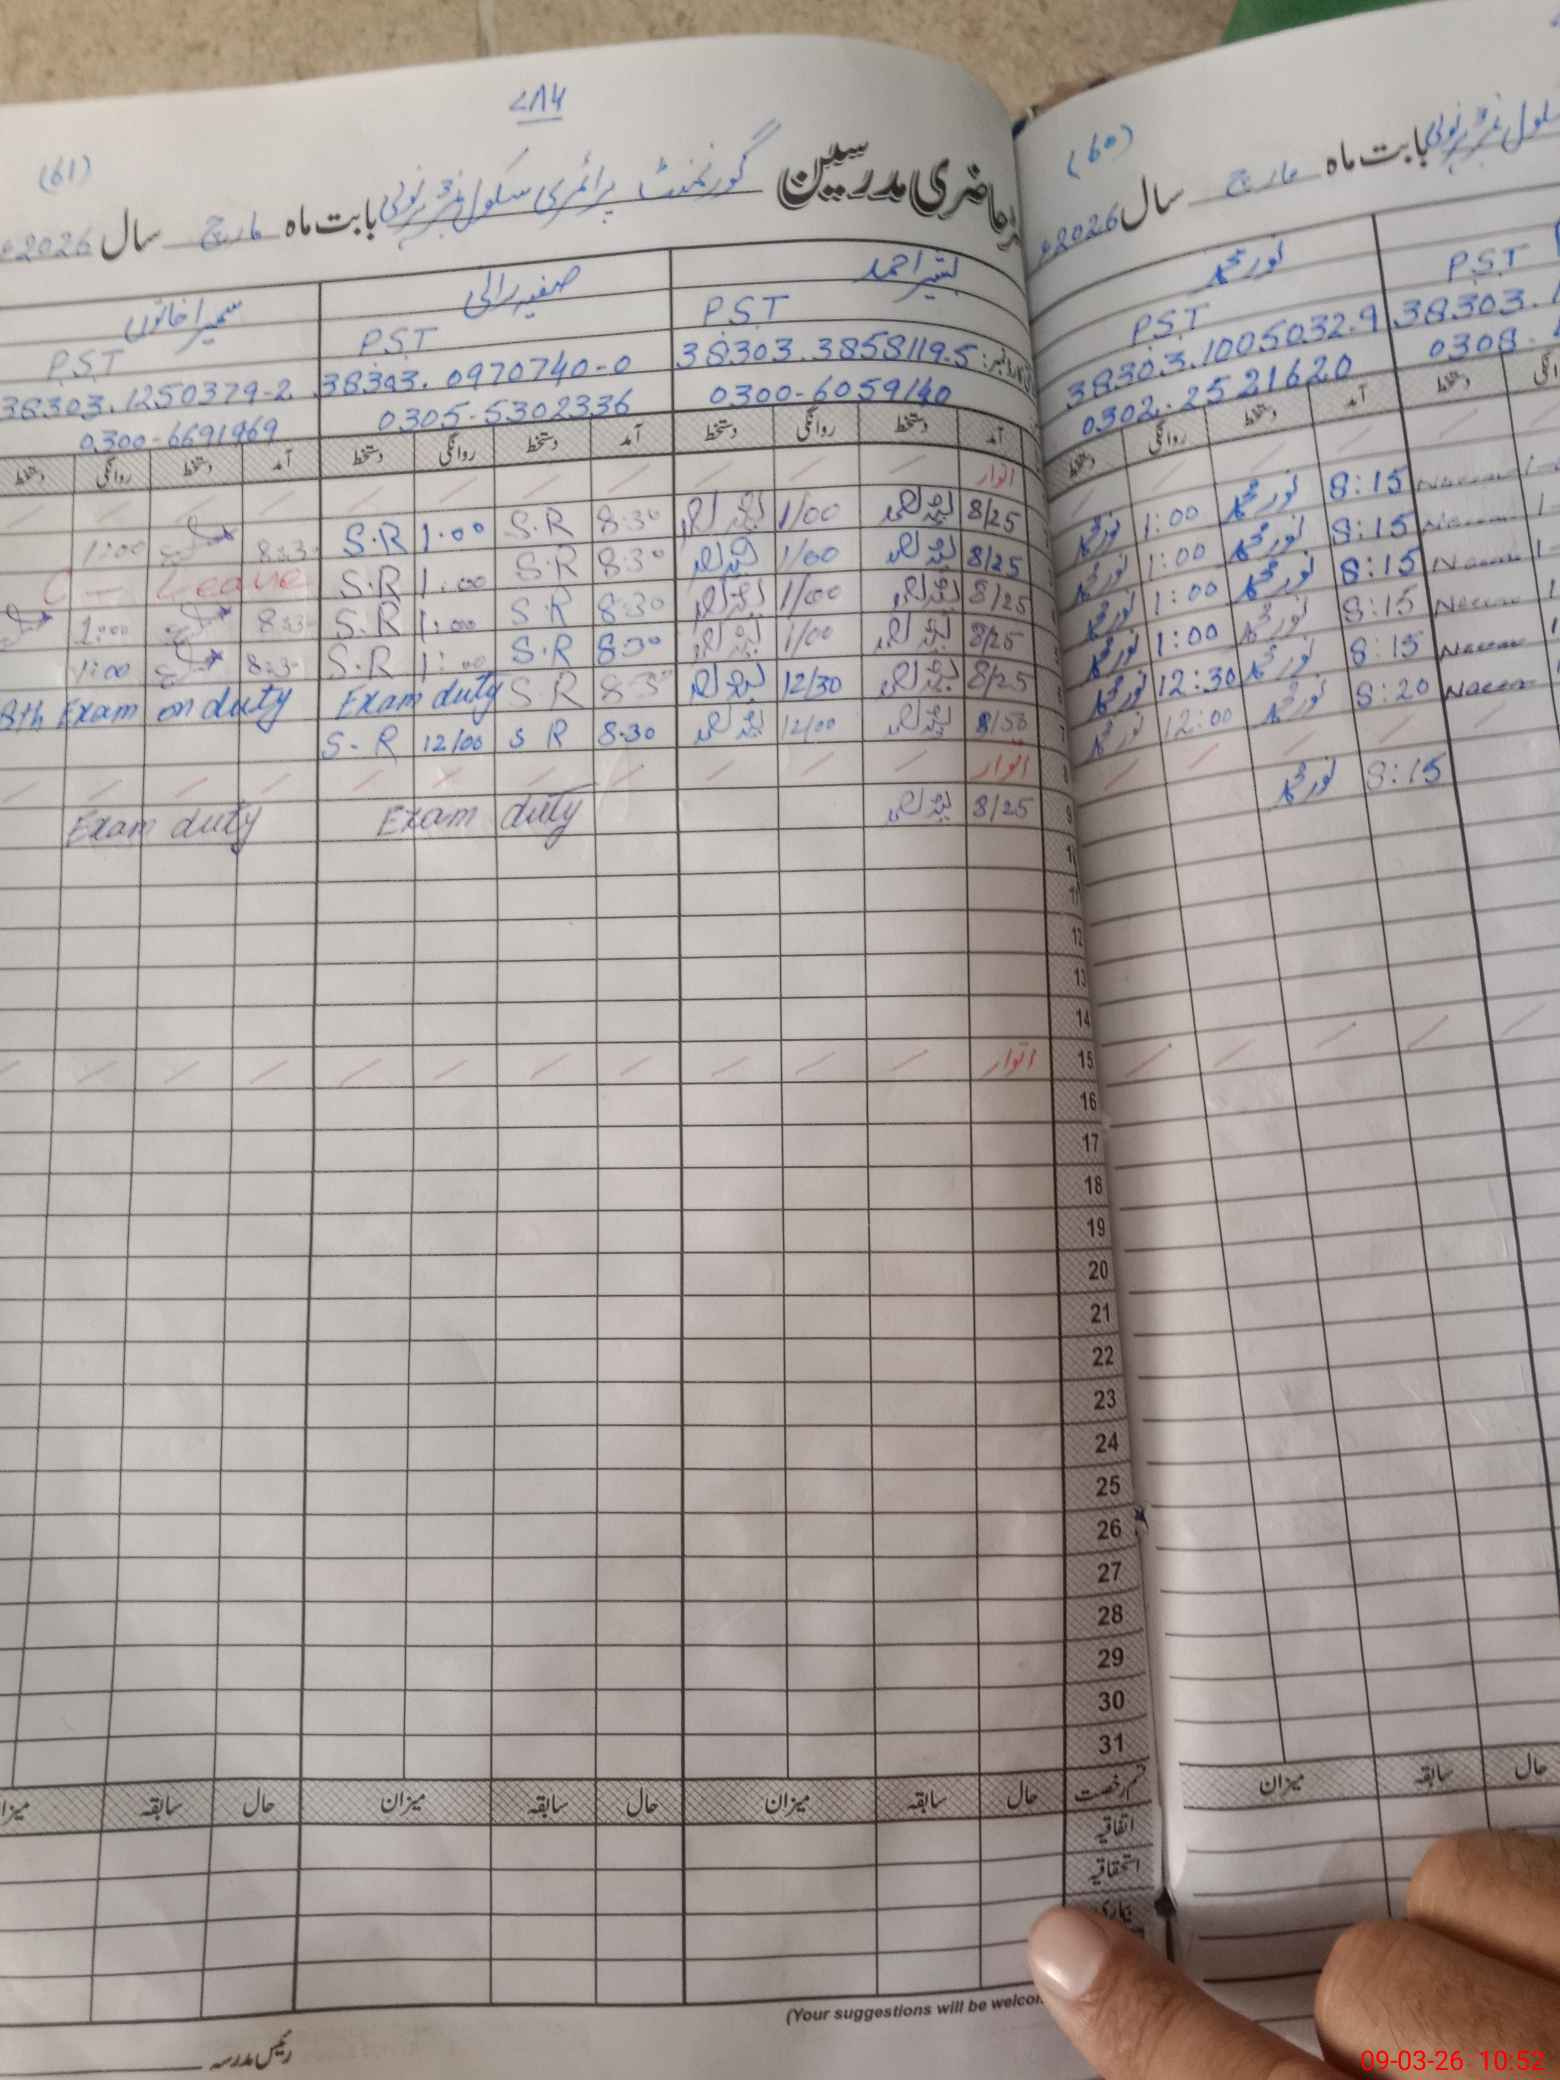 ۷۸۶
(61)
رجسٹر حاضری مدرسین گورنمنٹ پرائمری سکول نمبر 3 بابت ماہ مارچ سال 2026ء
بشیر احمد
P.S.T
38303.3858119.5
0300-6059140
آمد دستخط روانگی دستخط
صفیہ رانی
P.S.T
38303.0970740-0
0305-5302336
آمد دستخط روانگی دستخط
سمیرا خاتون
P.S.T
38303.1250379-2
0300-6691969
آمد دستخط روانگی دستخط
اتوار
8/25 بشیر احمد 1/00 بشیر احمد 8:30 S.R 1:00 S.R 8:30 1:00
8/25 بشیر احمد 1/00 بشیر احمد 8:30 S.R 1:00 S.R C - Leave
8/25 بشیر احمد 1/00 بشیر احمد 8:30 S.R 1:00 S.R 8:30 1:00
8/25 بشیر احمد 1/00 بشیر احمد 8:30 S.R 1:00 S.R 8:30 1:00
8/25 بشیر احمد 12/30 بشیر احمد 8:30 S.R Exam duty 8th Exam on duty
7 8/50 بشیر احمد 12/00 بشیر احمد 8.30 S R 12/00 S-R
8 اتوار
9 8/25 بشیر احمد Exam duty Exam duty
10
11
12
13
14
15 اتوار
16
17
18
19
20
21
22
23
24
25
26
27
28
29
30
31
قسم رخصت حال سابقہ میزان حال سابقہ میزان حال سابقہ میزان
اتفاقیہ
استحقاقیہ
بیماری
(Your suggestions will be welcom
رئیس مدرسہ
(60)
سکول نمبر 3 بابت ماہ مارچ سال 2026ء
نور محمد
P.S.T
38303.1005032.9
0302-2521620
آمد دستخط روانگی دستخط
P.S.T
38303.
0308.
دستخط
8:15 نور محمد 1:00 نور محمد
8:15 نور محمد 1:00 نور محمد
8:15 نور محمد 1:00 نور محمد
8:15 نور محمد 1:00 نور محمد
8:15 نور محمد 12:30 نور محمد
8:20 نور محمد 12:00 نور محمد
8:15 نور محمد
حال سابقہ میزان
09-03-26 10:52